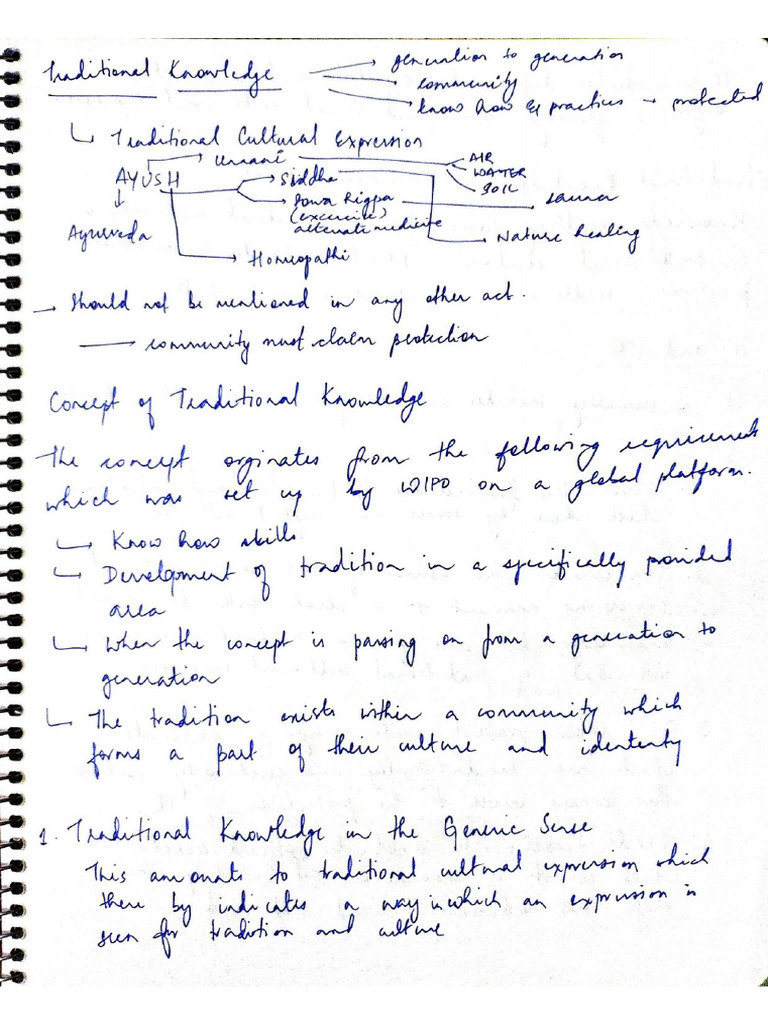 generation to generation
Traditional Knowledge
community
know how & practices → protected
Traditional Cultural Expression
Unani
AIR
WATER
SOIL
AYUSH
Siddha
Sowa Rigpa
(excercise)
alternate medicine
Ayurveda
Nature healing
Homeopathi
→ Should not be mentioned in any other act.
community must claim protection
Concept of Traditional Knowledge
The concept orginates from the following requirements
which was set up by WIPO on a global platform.
Know how skills
Development of tradition in a specifically provided
area
When the concept is passing on from a generation to
generation
The tradition exists within a community which
forms a part of their culture and idententy
1. Traditional Knowledge in the Generic Sense
This amounts to traditional cultural expression which
there by indicates a way in which an expression is
seen for tradition and culture